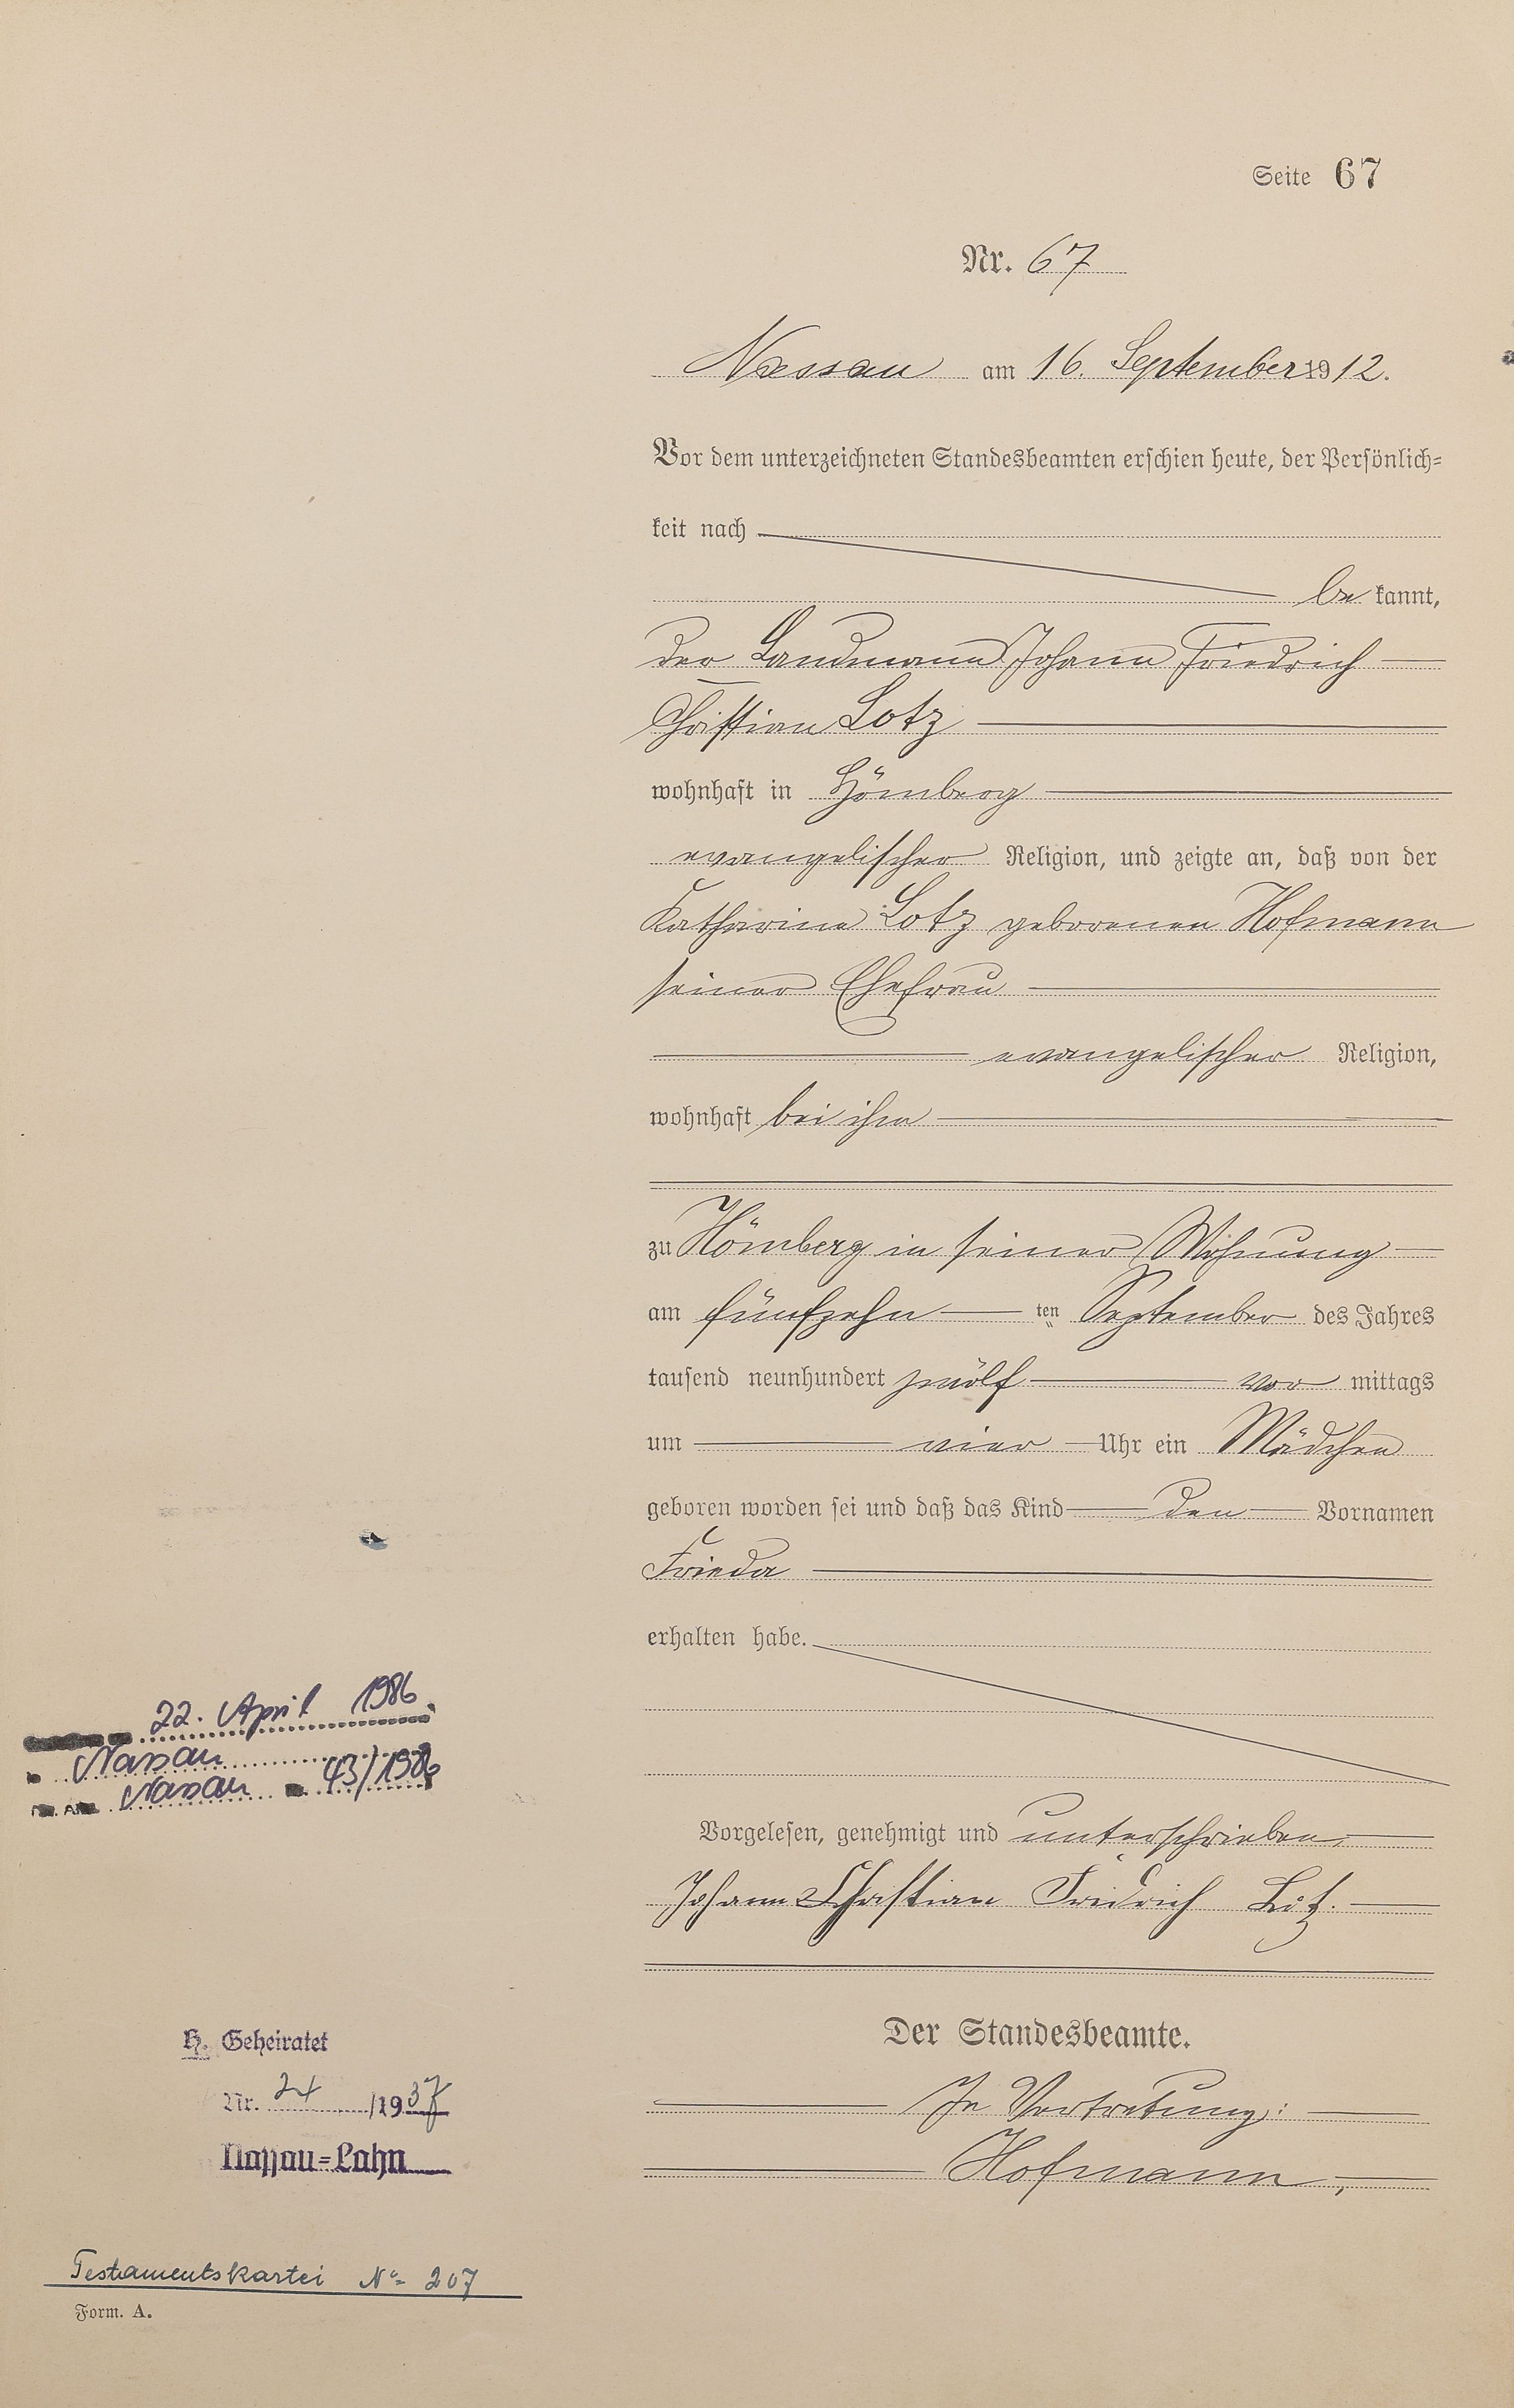 Seite 67
Nr. 67
Nassau am 16. September 1912.
Vor dem unterzeichneten Standesbeamten erschien heute, der Persönlich=
keit nach
be kannt,
der Landmann Johann Friedrich
Christian Lotz
wohnhaft in Hömberg
evangelischer Religion, und zeigte an, daß von der
Katharine Lotz geborenen Hofmann
seiner Ehefrau
evangelischer Religion,
wohnhaft bei ihm
zu Hömberg in seiner Wohnung
am fünfzehn ten September des Jahres
tausend neunhundert zwölf vor mittags
um vier Uhr ein Mädchen
geboren worden sei und daß das Kind den Vornamen
Frieda
erhalten habe.
22. April 1986
Nassau
Nassau 43/1986
Vorgelesen, genehmigt und unterschrieben
Johann Christian Friedrich Lotz.
Der Standesbeamte.
In Vertretung:
Hofmann
H. Geheiratet
Nr. 24 /1937
Nassau=Lahn
Testamentskartei No 207
Form. A.